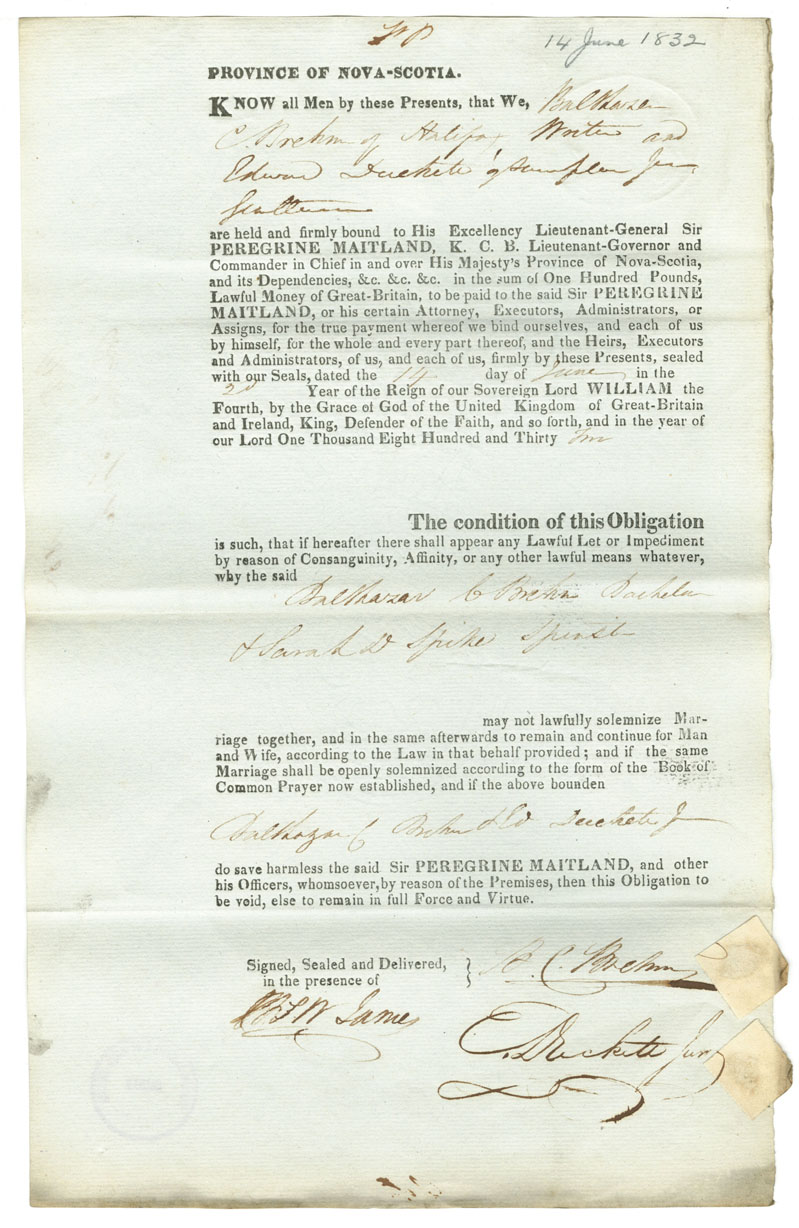 14 June 1832
PROVINCE OF NOVA-SCOTIA.
KNOW all Men by these Presents, that We, Balthazar
C. Brehm of Halifax Writer and
Edward Duckett of Jun
Gentleman
are held and firmly bound to His Excellency Lieutenant-General Sir
PEREGRINE MAITLAND, K. C. B. Lieutenant-Governor and
Commander in Chief in and over His Majesty's Province of Nova-Scotia,
and its Dependencies, &c. &c. &c. in the sum of One Hundred Pounds,
Lawful Money of Great-Britain, to be paid to the said Sir PEREGRINE
MAITLAND, or his certain Attorney, Executors, Administrators, or
Assigns, for the true payment whereof we bind ourselves, and each of us
by himself, for the whole and every part thereof, and the Heirs, Executors
and Administrators, of us, and each of us, firmly by these Presents, sealed
with our Seals, dated the 14 day of June in the
2d Year of the Reign of our Sovereign Lord WILLIAM the
Fourth, by the Grace of God of the United Kingdom of Great-Britain
and Ireland, King, Defender of the Faith, and so forth, and in the year of
our Lord One Thousand Eight Hundred and Thirty two
The condition of this Obligation
is such, that if hereafter there shall appear any Lawful Let or Impediment
by reason of Consanguinity, Affinity, or any other lawful means whatever,
why the said
Balthazar C Brehm Bachelor
& Sarah D Spike Spinster
may not lawfully solemnize Mar-
riage together, and in the same afterwards to remain and continue for Man
and Wife, according to the Law in that behalf provided; and if the same
Marriage shall be openly solemnized according to the form of the Book of
Common Prayer now established, and if the above bounden
Balthazar C Brehm & Ed Duckett J
do save harmless the said Sir PEREGRINE MAITLAND, and other
his Officers, whomsoever, by reason of the Premises, then this Obligation to
be void, else to remain in full Force and Virtue.
Signed, Sealed and Delivered, } B. C. Brehm
in the presence of
James
E. Duckett Jun